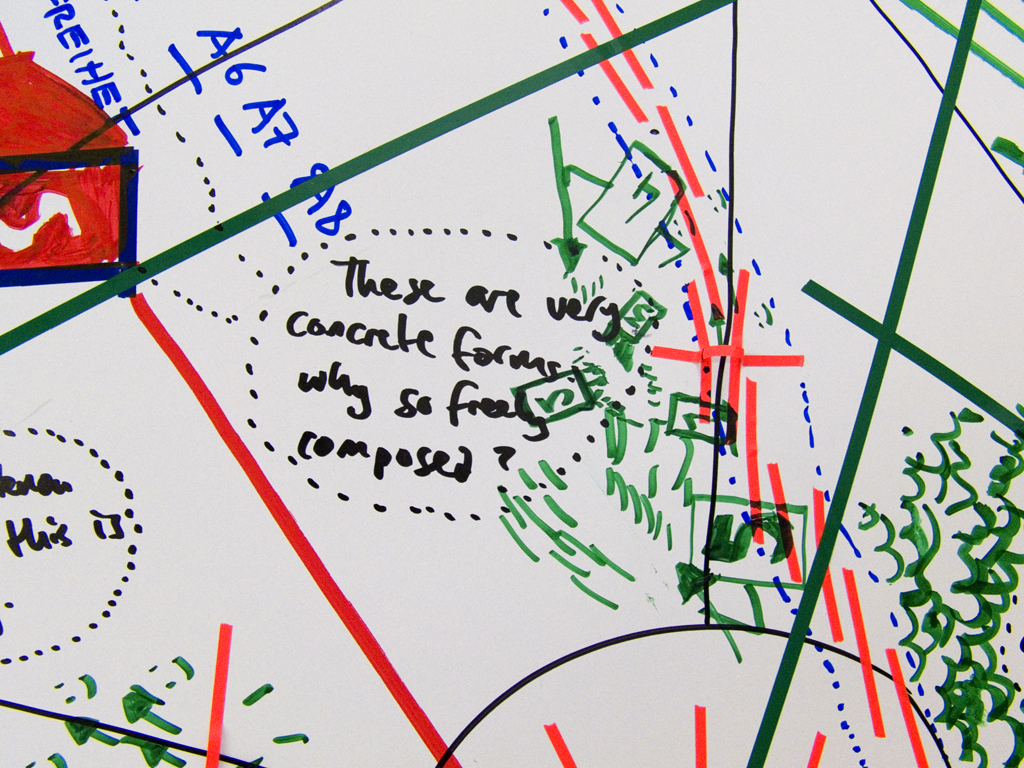 FREIHEIT
A6 A7
A8
These are very
concrete forms
why so freely
composed?
know
this is
S
S
S
S
S